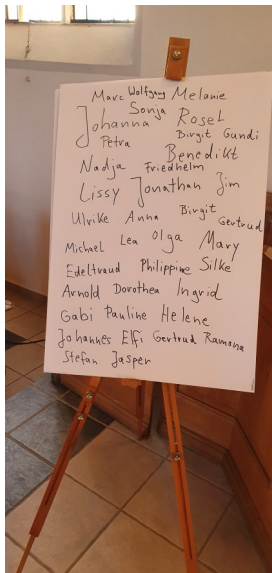 Marc Wolfgang Melanie
Sonja
Johanna Rosel
Petra Birgit Gundi
Benedikt
Nadja Friedhelm
Lissy Jonathan Jim
Ulrike Anna Birgit
Gertrud
Michael Lea Olga Mary
Edeltraud Philippine Silke
Arnold Dorothea Ingrid
Gabi Pauline Helene
Johannes Elfi Gertrud Ramona
Stefan Jasper